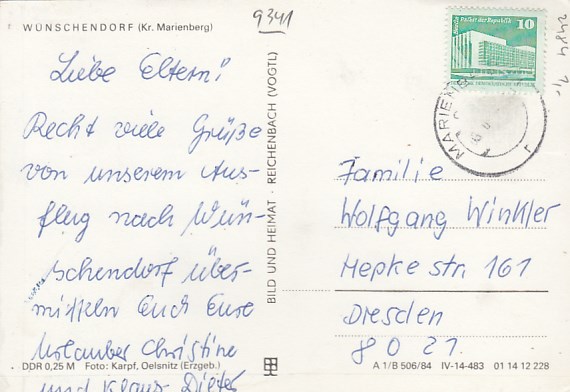 WÜNSCHENDORF (Kr. Marienberg)
9341
Liebe Eltern!
Recht viele Grüße
von unserem Aus-
flug nach Wün-
schendorf über-
mitteln Euch Eure
Urlauber Christine
und Klaus-Dieter
DDR 0,25 M Foto: Karpf, Oelsnitz (Erzgeb.)
BILD UND HEIMAT · REICHENBACH (VOGTL)
Palast der Republik
10
MARIENB
Familie
Wolfgang Winkler
Hepke str. 161
Dresden
8021
A 1/B 506/84 IV-14-483 01 14 12 228